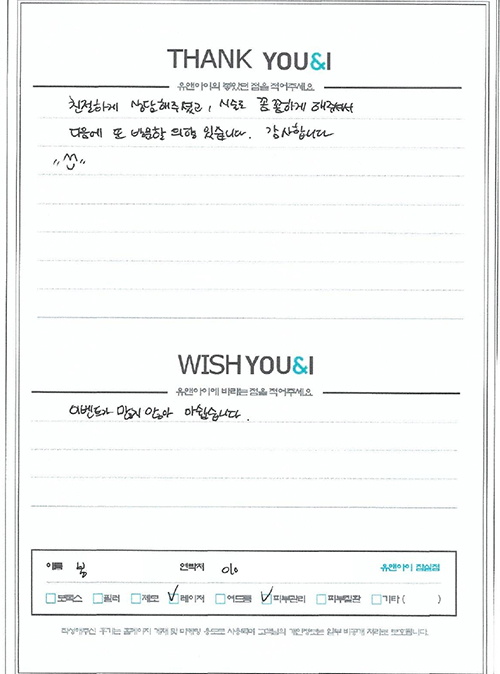 THANK YOU&I
유앤아이의 좋았던 점을 적어주세요
친절하게 상담해주셨고, 시술도 꼼꼼하게 해주셔서
다음에 또 방문할 의향 있습니다. 감사합니다
"^^"
WISH YOU&I
유앤아이에 바라는 점을 적어주세요
이벤트가 많지 않아 아쉽습니다.
이름 연락처 010 유앤아이 잠실점
보톡스 필러 제모 레이저 여드름 피부관리 피부질환 기타 ( )
작성해주신 후기는 홈페이지 게재 및 마케팅 용도로 사용되며 고객님의 개인정보는 일부 비공개 처리로 보호됩니다.